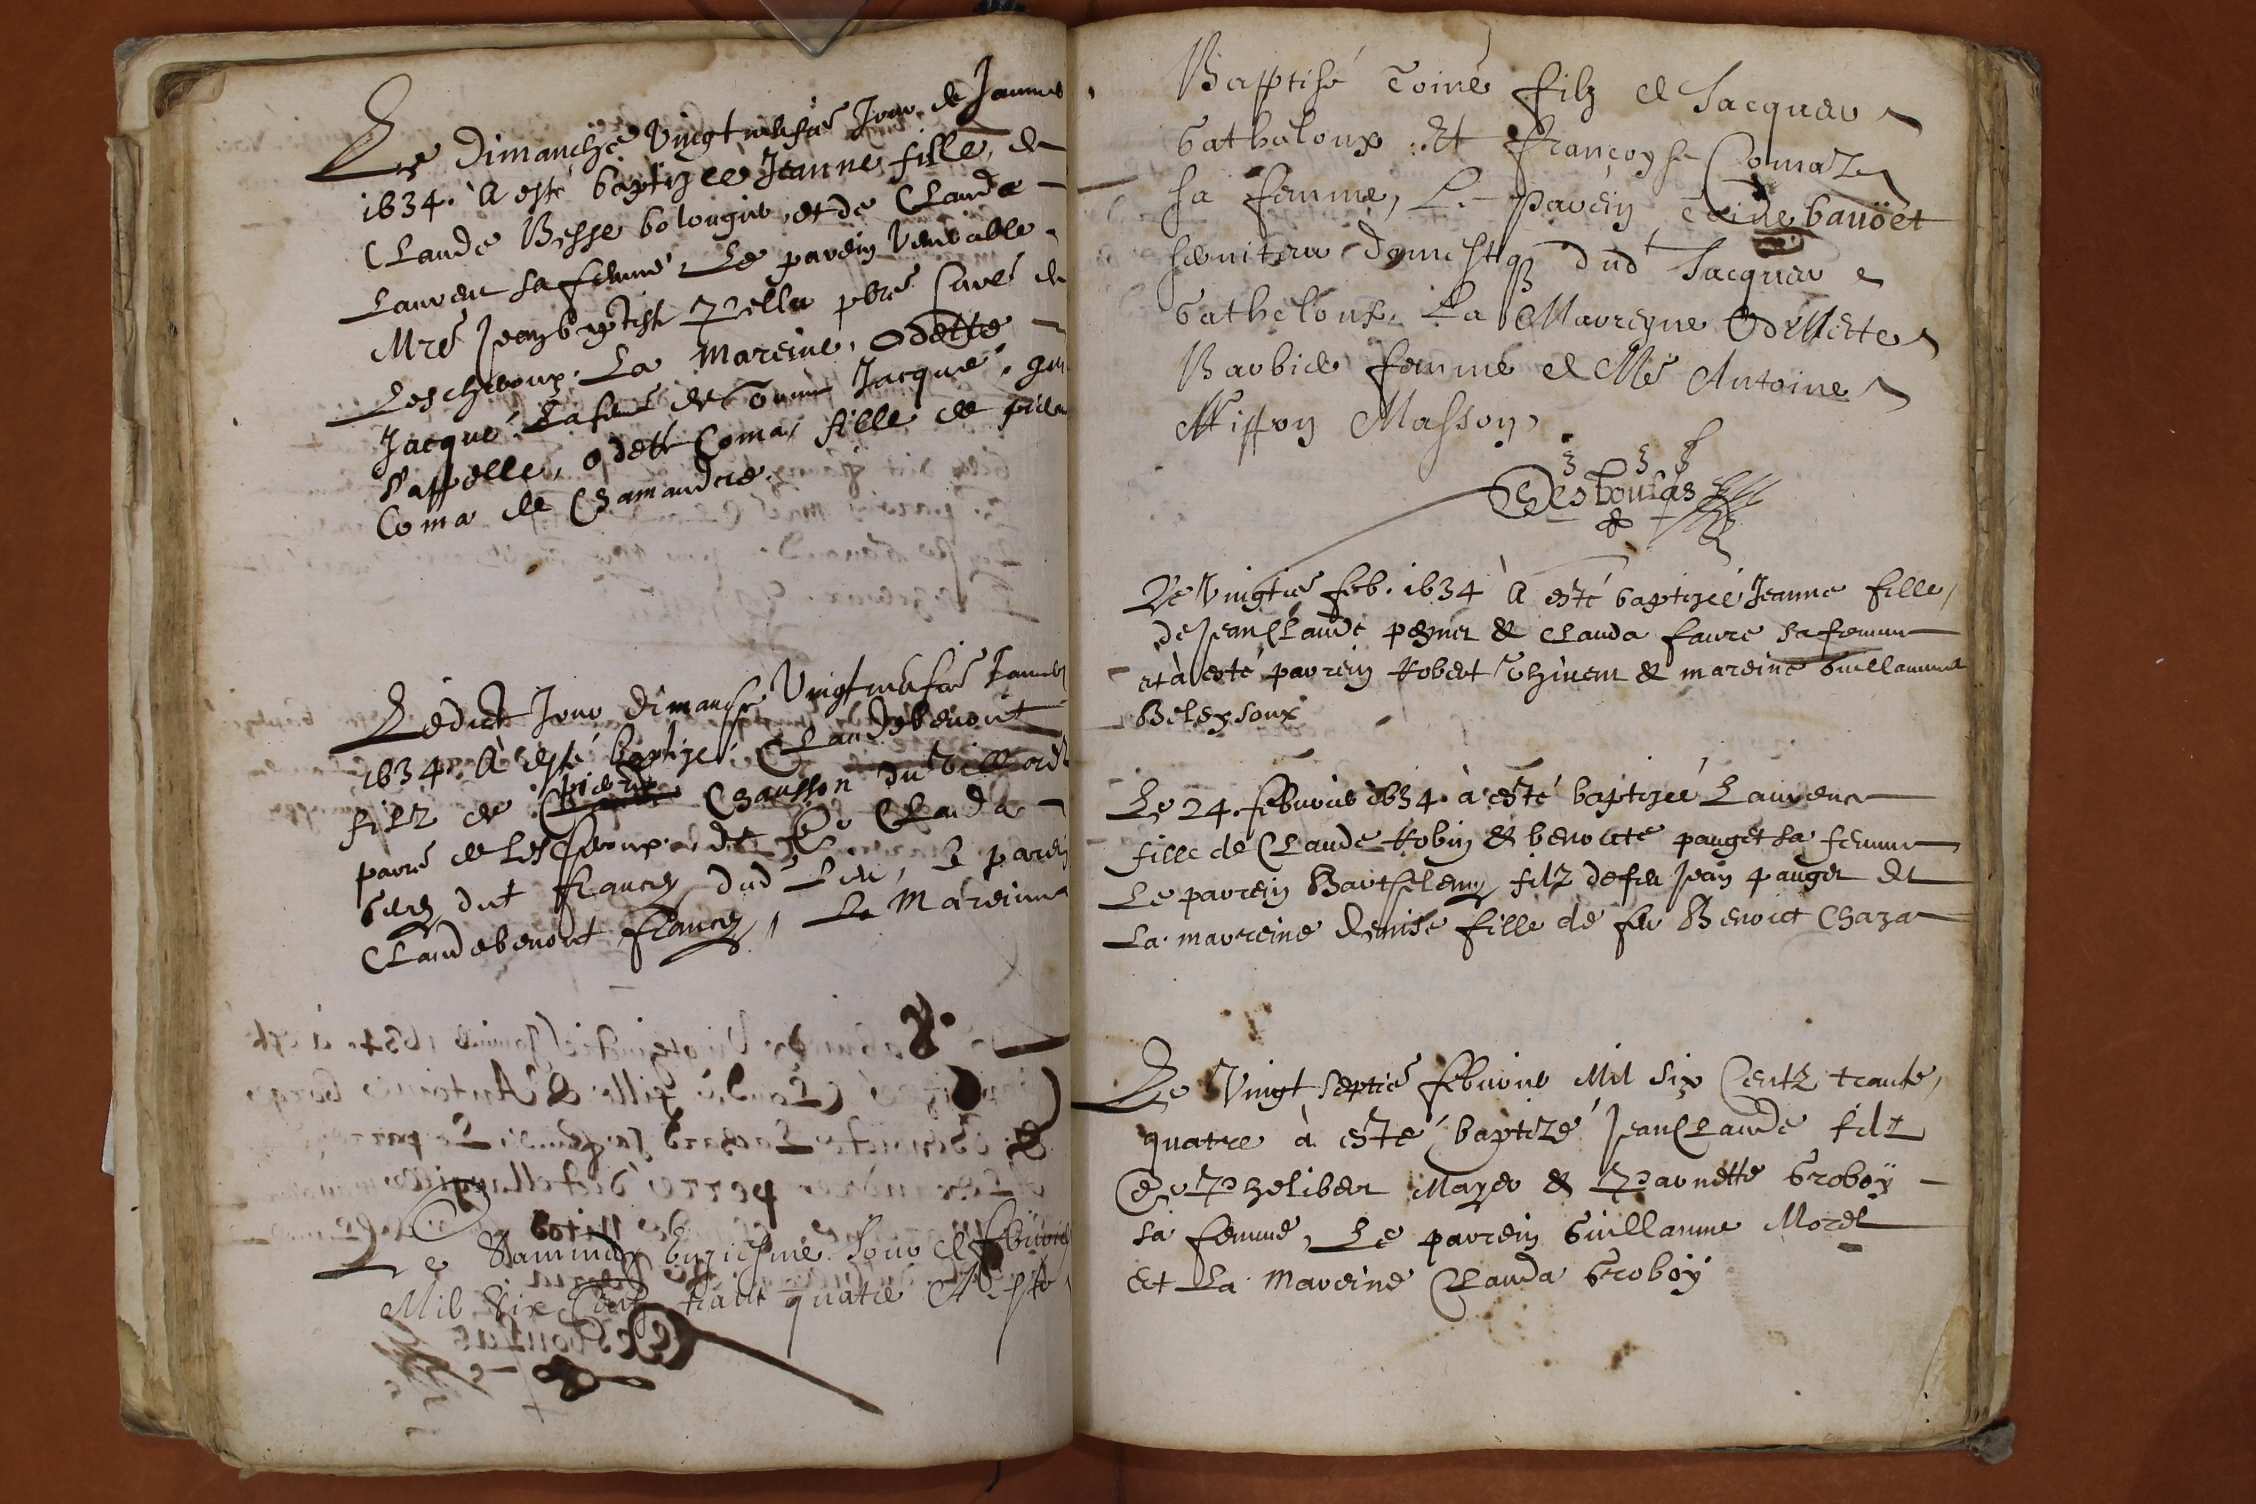 Le dimanche Vingt neufie Jour de Januier
1634. A esté baptizee Jeanne fille, de
Claude Besse bolongier et de Clauda
Laurent sa femme Le parein Venerable
Mre Jean baptiste pbre Curé de
Lescheroux. La Mareine, Odette
Jacque. La femme de Jacque, qui
s'appelle, odette Coma, fille de
Coma de Chamandre.
Ledict Jour dimanche Vingt neufie Januier
1634. A esté baptizé Claude benoict
filz de pierre Chausson du Villard
parre de Lescheroux et de Clauda
dud Lieu, Le parein
Claude benoict francey, La Mareinne
Le Sammedy Jour de febvrier
Mil Six Centz trante quatre A esté
Baptisé Toiné filz de Jacques
Gatheloux Et Françoyse Comaz
sa femme, Le parein bauöet
seruiteur domestiq dud Jacques
Gatheloux. La Marreyne Odillette
Barbier femme de Me Antoine
Masson
Desboulas
Le Vingtie feb. 1634 A esté baptizée Jeanne fille,
de Jean Claude & Clauda faure sa femme
et à esté parrein Robert Thiuent & mareine Guillauma
Beleysoux
Le 24. febvrier 1634. à esté baptizée Laurence
fille de Claude Robin & benoicte pauget sa femme
Le parrein Barthelemy filz de feu Jean pauget Et
La marreine denise fille de feu Benoict Chaza
Le Vingt septie febvrier Mil six Centz trante,
quatre à esté baptizé Jean Claude filz
De Phelibert Mayer & Pernette Groboÿ
sa femme, Le parrein Guillaume Morel
Et La Mareine Clauda Groboÿ